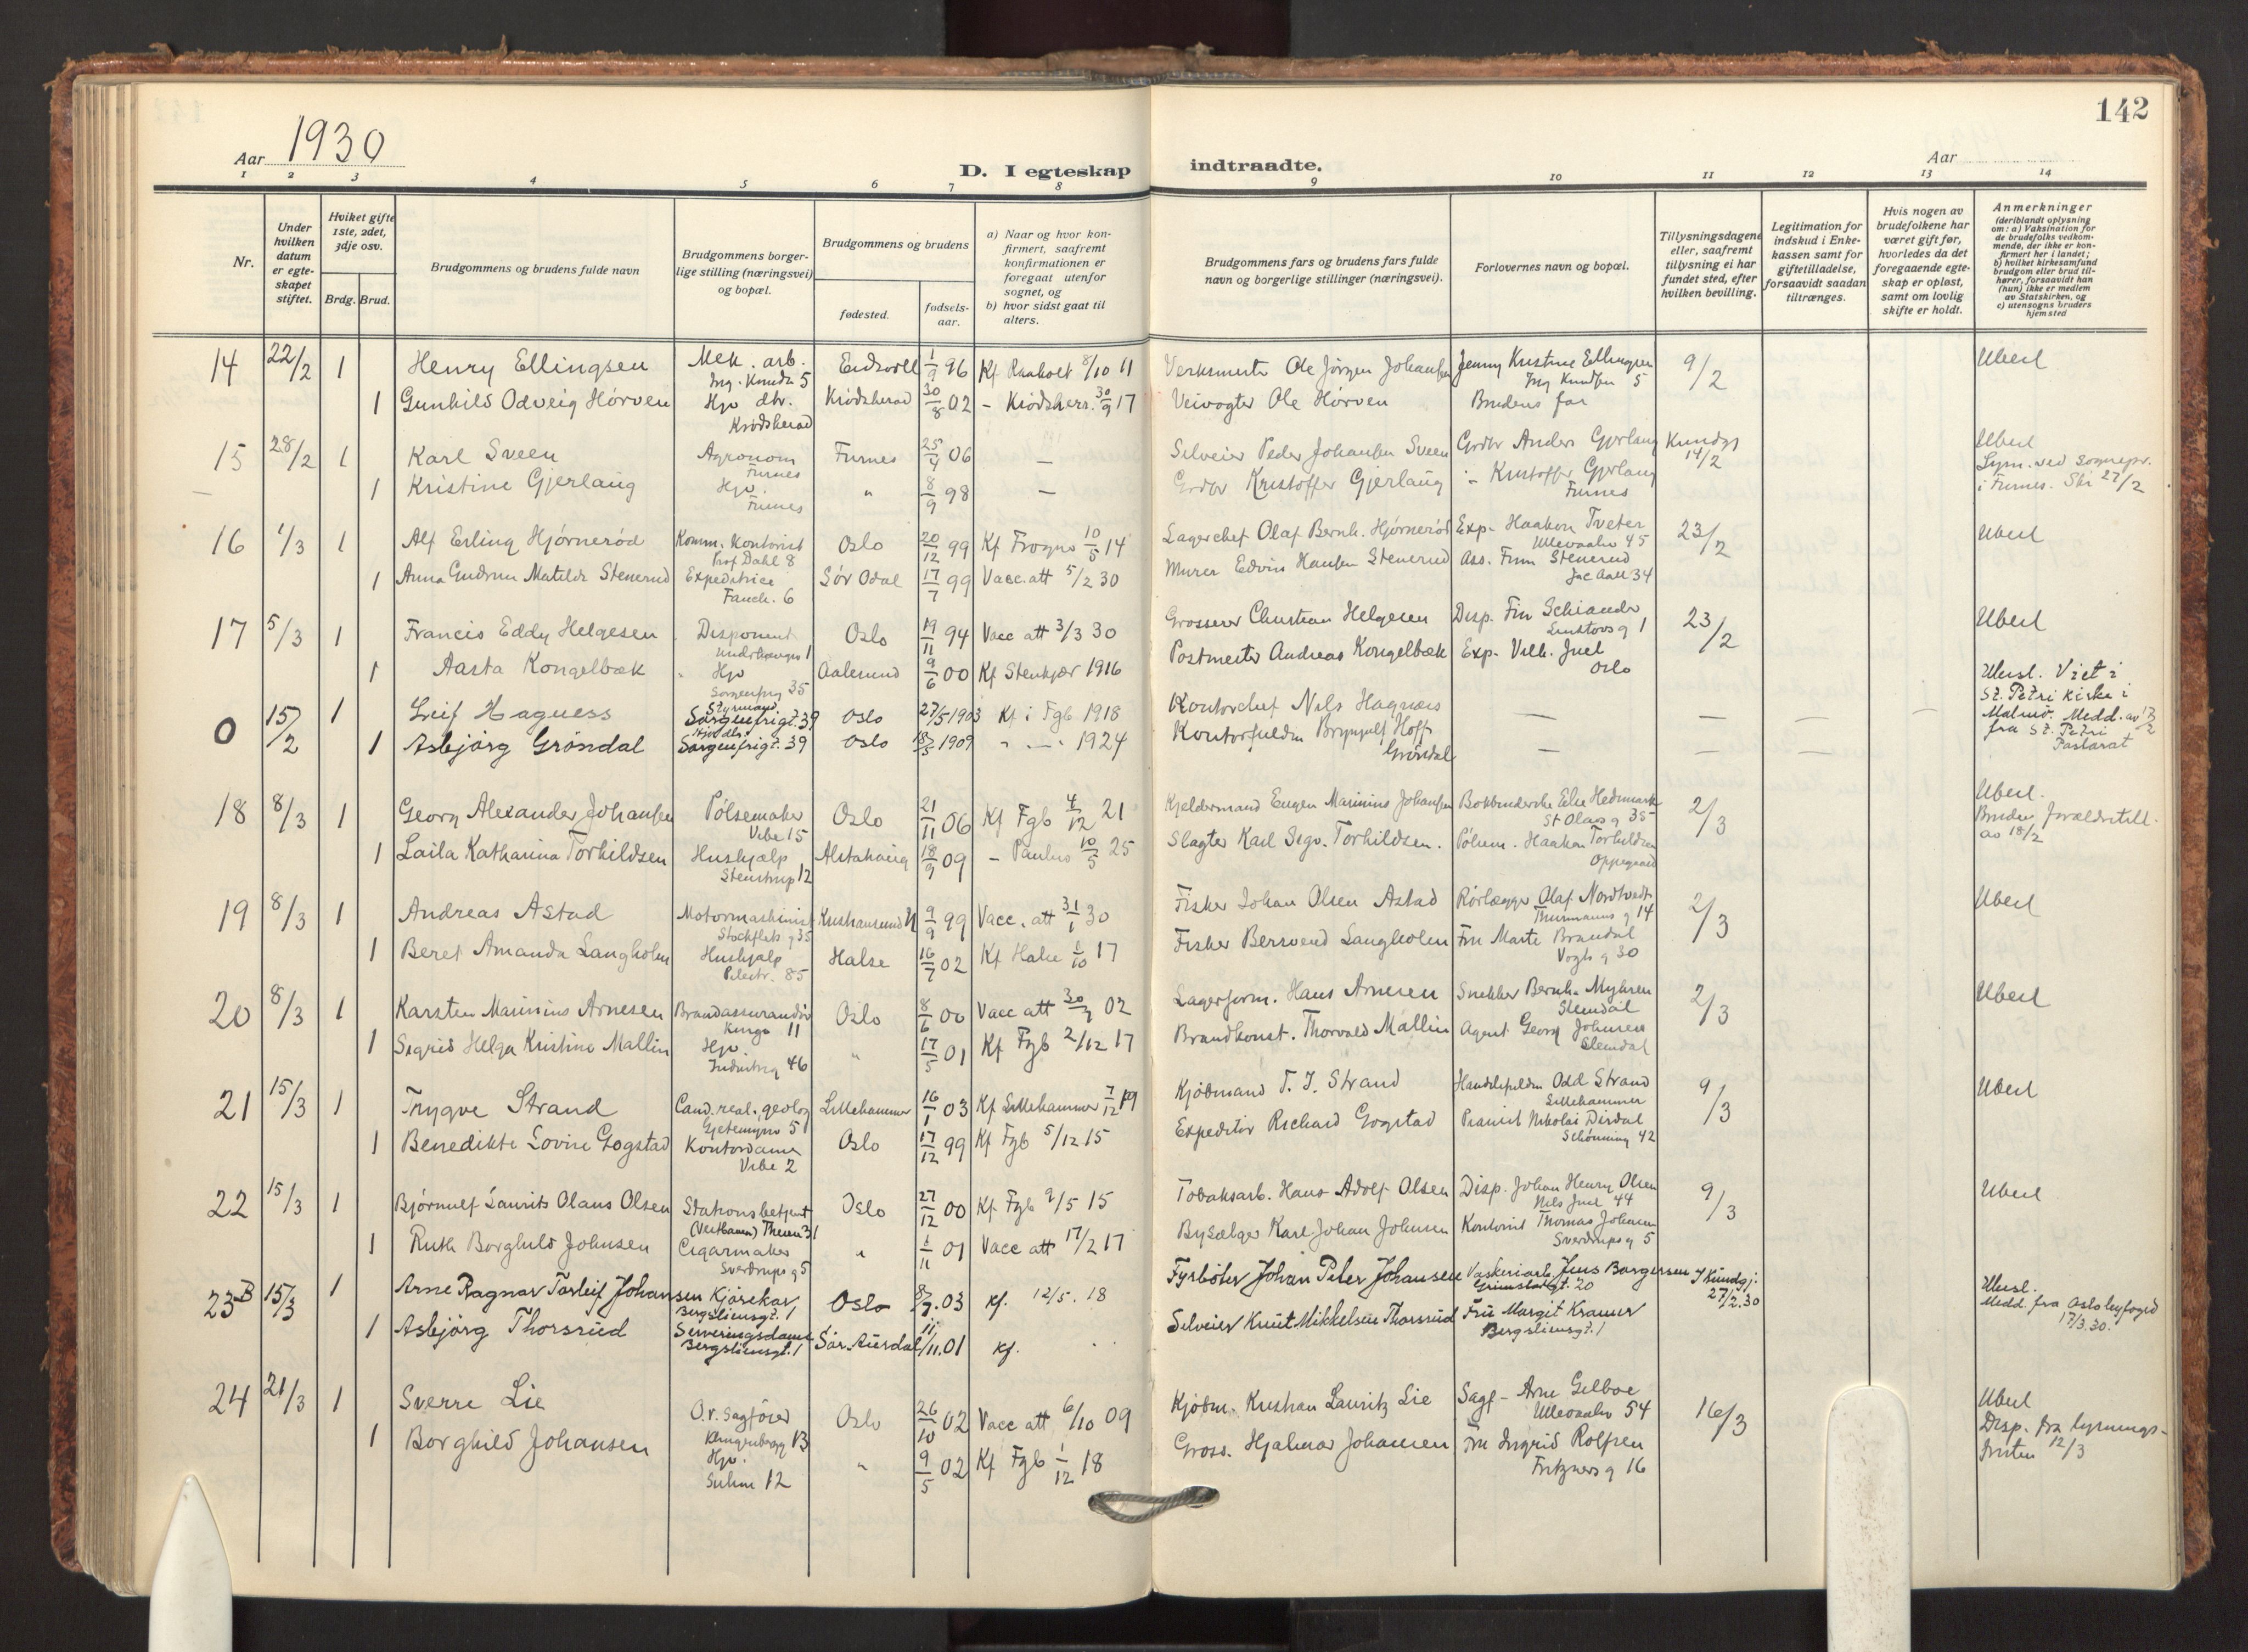 142
Aar 1930
D. I egteskap indtraadte.
Aar
1 2 3 4 5 6 7 8 9 10 11 12 13 14
Nr.
Under hvilken datum er egteskapet stiftet.
Hvilket gifte 1ste, 2det, 3dje osv.
Brdg. Brud.
Brudgommens og brudens fulde navn
Brudgommens borgerlige stilling (næringsvei) og bopæl.
Brudgommens og brudens
fødested.
fødselsaar.
a) Naar og hvor konfirmert, saafremt konfirmationen er foregaat utenfor sognet, og
b) hvor sidst gaat til alters.
Brudgommens fars og brudens fars fulde navn og borgerlige stillinger (næringsvei).
Forlovernes navn og bopæl.
Tillysningsdagene eller, saafremt tillysning ei har fundet sted, efter hvilken bevilling.
Legitimation for indskud i Enkekassen samt for giftetilladelse, forsaavidt saadan tiltrænges.
Hvis nogen av brudefolkene har været gift før, hvorledes da det foregaaende egteskap er opløst, samt om lovlig skifte er holdt.
Anmerkninger
(deriblandt oplysning om: a) Vaksination for de brudefolks vedkommende, der ikke er konfirmert her i landet; b) hvilket kirkesamfund brudgom eller brud tilhører, forsaavidt han (hun) ikke er medlem av Statskirken, og c) utensogns bruders hjemsted
14 22/2 1 Henry Ellingsen Mek. arb. Eidsvoll 1/9 96 Kf Raaholt 8/10 11 Verksmester Ole Jørgen Johansen Jenny Kristine Ellingsen 9/2 Ubesl
Ing. Knuds 5 Ing Knudsen 5
1 Gunhild Odveig Hörven Hjv dtr. Krödsherad 30/8 02 - Krödsherr. 30/9 17 Veivogter Ole Hörven Brudens far
Krödsherad
15 28/2 1 Karl Sveen Agronom Furnes 25/4 06 — Selveier Peder Johansen Sveen Grdbr Anders Gjerlaug Kundgj 14/2 Ubesl
Furnes Lysn. ved sognepr.
1 Kristine Gjerlaug Hjv. " 8/9 98 — Grdbr Kristoffer Gjerlaug - Kristoffer Gjerlaug i Furnes. Ski 27/2
Furnes Furnes
16 1/3 1 Alf Erling Hjörneröd Komm. kontorist Oslo 20/12 99 Kf Frogner 10/5 14 Lagerchef Olaf Bernh. Hjörneröd Exp. Haakon Tveter 23/2 Ubesl
Prof Dahl 8 Ullevaalsv 45
1 Anna Gudrun Matilde Stenerud Expeditrice Sör Odal 17/7 99 Vacc. att 5/2 30 Murer Edvin Hansen Stenerud Ass. Finn Stenerud
Fauch. 6 Jac Aall 34
17 5/3 1 Francis Eddy Helgesen Disponent Oslo 19/11 94 Vacc att 3/3 30 Grosserer Christian Helgesen Disp. Fin Schiander 23/2 Ubesl
1
1 Aasta Kongelbæk Hjv Aalesund 9/6 00 Kf Stenkjær 1916 Postmester Andreas Kongelbæk Exp. Vilh. Juel
Sorgenfrig 35 Oslo
0 15/2 1 Leif Hagness Styrmand Oslo 27/5 1903 Kf i Fgb 1918 Kontorchef Nils Hagnæs — — — — Ubesl. Viet i
Sorgenfrigt. 39 St. Petri kirke i
1 Asbjörg Gröndal Sorgenfrigt. 39 Oslo 1909 " — " 1924 Kontorfuldm Brynjulf Hoff Gröndal — — — — Malmö. Medd. av 17/2
fra St. Petri
Pastorat
18 8/3 1 Georg Alexander Johansen Pölsemaker Oslo 21/11 06 Kf Fgb 4/12 21 Kjeldermand Eugen Marinius Johansen Bokbinderske Else Hedemark 2/3 Ubesl.
Vibe 15 St Olavs g 35 Brudens forældretill.
1 Laila Katharina Torhildsen Hushjælp Alstahaug 18/9 09 - Paulus 10/5 25 Slagter Karl Sigv. Torhildsen. Pölsem. Haakon Torhildsen av 18/2
Stenstrup 12 Oppegaard
19 8/3 1 Andreas Astad Motormaskinist Kristiansund N 9/9 99 Vacc. att 31/1 30 Fisker Johan Olsen Astad Rörlægger Olaf Nordtvedt 2/3 Ubesl
Stockfleths g 35 Thurmanns g 14
1 Beret Amanda Langholm Hushjælp Halse 16/7 02 Kf Halse 1/10 17 Fisker Bersvend Langholen Fru Marte Brandal
Pilestr. 85 Vogts g 30
20 8/3 1 Karsten Marinius Arnesen Brandassurandör Oslo 8/6 00 Vacc att 30/9 02 Lagerform. Hans Arnesen Snekker Bernh. Myhren 2/3 Ubesl
Kings 11 Slemdal
1 Sigrid Helga Kristine Mallin Hjv. " 17/5 01 Kf Fgb 2/12 17 Brandkonst. Thorvald Mallin Agent Georg Johnsen
Industrig 46 Slemdal
21 15/3 1 Trygve Strand Cand. real., geolog Lillehammer 16/1 03 Kf Lillehammer 7/12 19 Kjöbmand T. J. Strand Handelsfuldm Odd Strand 9/3 Ubesl
Gjetemyrsv 5 Lillehammer
1 Benedikte Lovise Gogstad Kontordame Oslo 17/12 99 Kf Fgb 5/12 15 Expeditör Richard Gogstad Pianist Nikolai Dirdal
Vibe 2 Schönning 42
22 15/3 1 Björnulf Laurits Olaus Olsen Stationsbetjent Oslo 27/12 00 Kf Fgb 9/5 15 Tobaksarb. Hans Adolf Olsen Disp. Johan Henry Olsen 9/3 Ubesl
(Vestbanen) There 31 Nils Juel 44
1 Ruth Borghild Johnsen Cigarmaker " 1/11 01 Vacc att 17/2 17 Bysælger Karl Johan Johnsen Kontorist Thomas Johnsen
Sverdrups g 5 Sverdrups g 5
23 B 15/3 1 Arne Ragnar Torleif Johansen Kjörekar Oslo 8/7. 03 kf. 12/5. 18 Fyrböter Johan Peter Johansen Vaskeriarb. Jens Borgersen Kundgj: 27/2.30 Ubesl.
Bergsliensgt. 1 Grimstadgt. 20 Medd. fra Oslo byfogd
1 Asbjörg Thorsrud Serveringsdame Sör. Aurdal 11/11. 01 kf. Selveier Knut Mikkelsen Thorsrud Fru Margit Kramer 17/3.30.
Bergsliensgt. 1 Bergsliensgt. 1
24 21/3 1 Sverre Lie O.r. Sagförer Oslo 26/10 02 Vacc att 6/10 09 Kjöbm. Kristian Lauritz Lie Sagf - Arne Gilboe 16/3 Ubesl
Klingenbergg 13 Ullevaalsv 54 Disp. fra lysnings-
1 Borghild Johansen Hjv. " 9/5 02 Kf Fgb 1/12 18 Gross. Hjalmar Johansen Fru Ingrid Rolfsen fristen 12/3
Suhm 12 Fritzners g 16